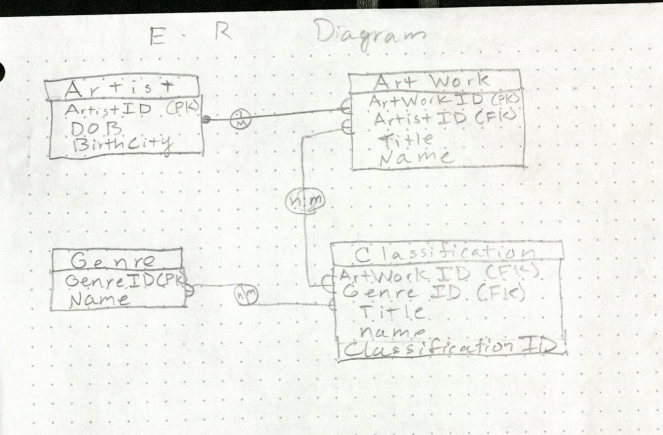 E-R Diagram
Artist
ArtistID (PK)
D.O.B
BirthCity
Art Work
ArtWork ID (PK)
Artist ID (FK)
Title
Name
M
n:m
Genre
GenreID(PK)
Name
nm
Classification
ArtWork ID (FK)
Genre ID (FK)
Title
name
Classification ID